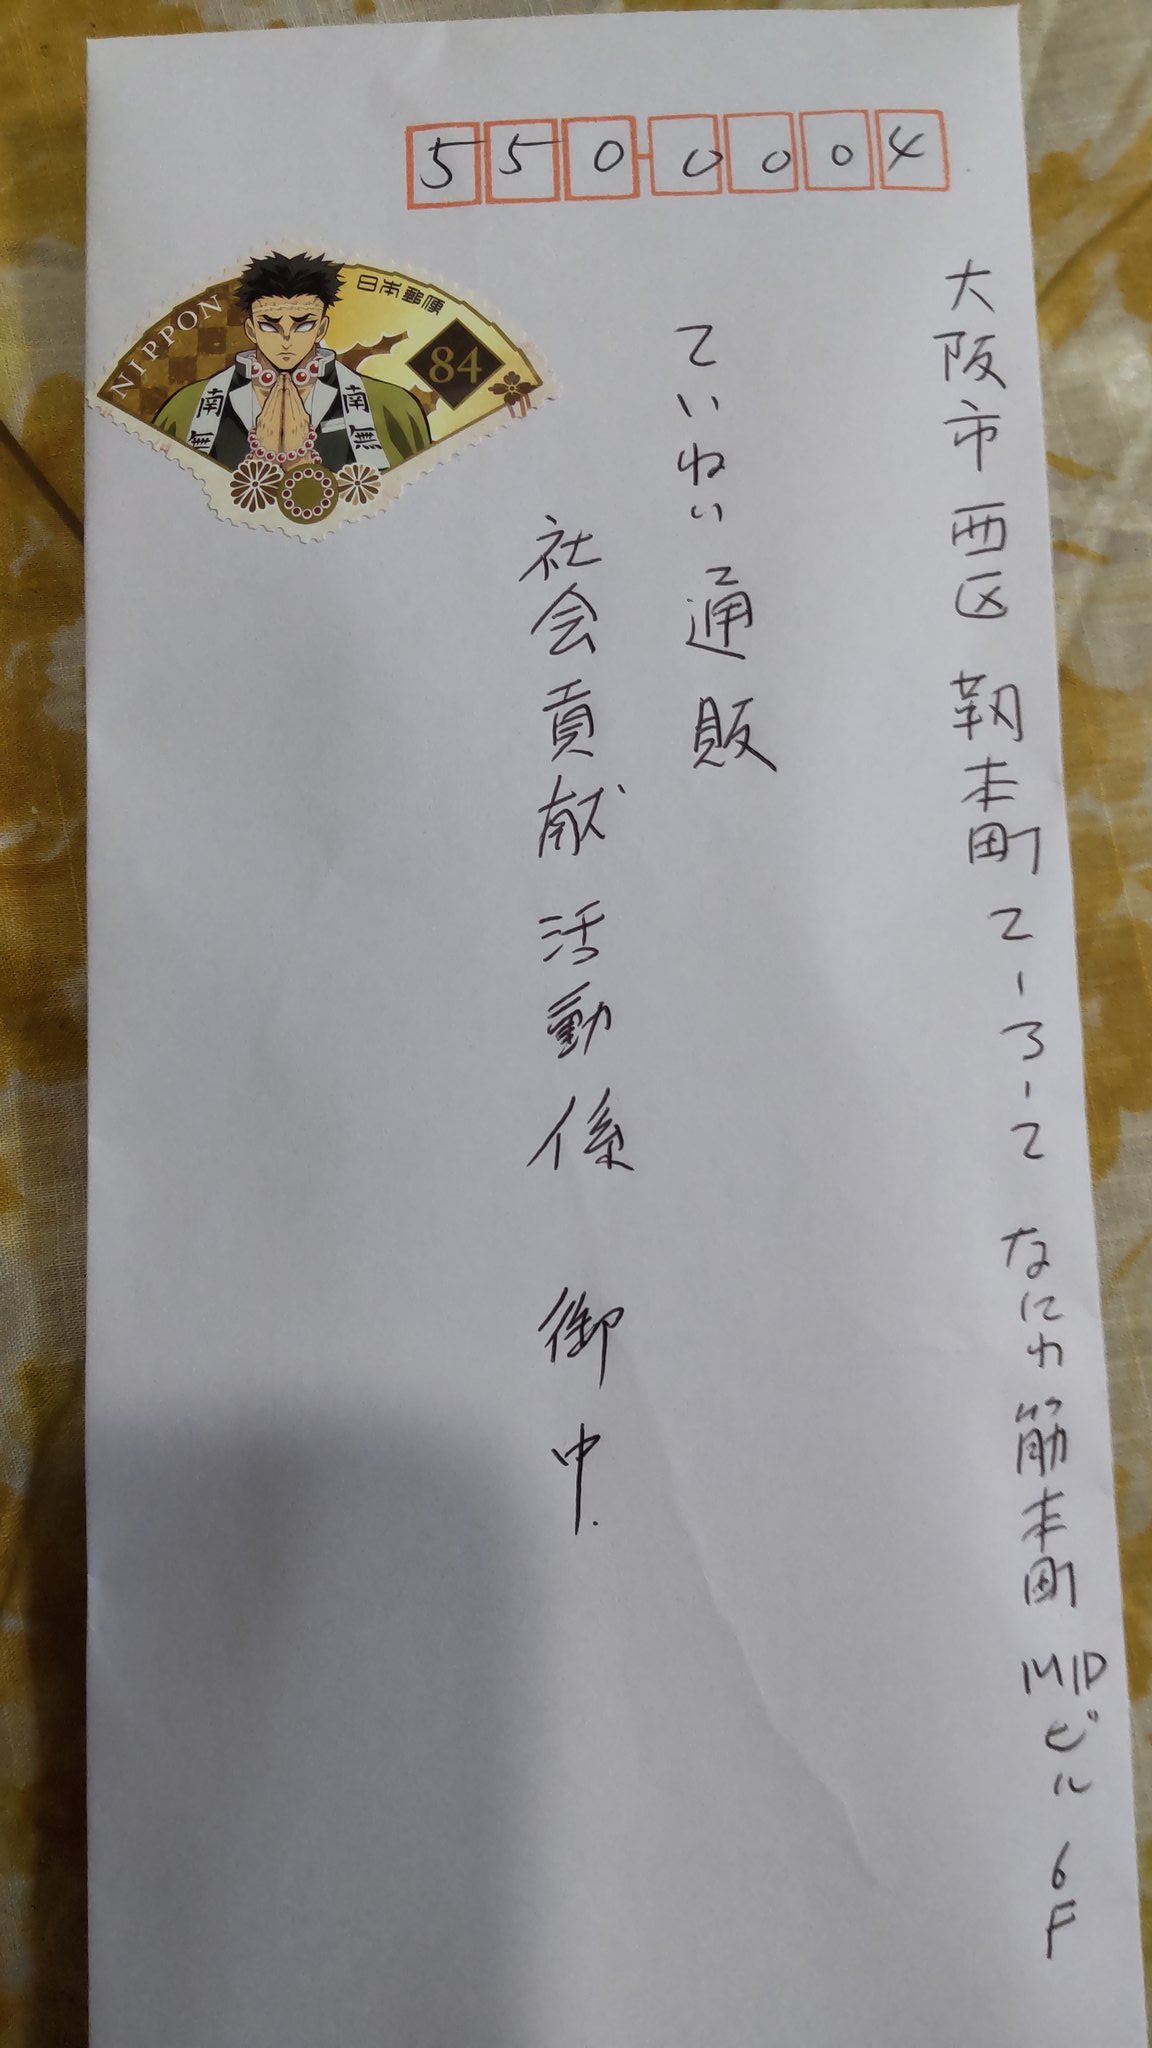 550-0004
大阪市西区靭本町2-3-2 なにわ筋本町MIDビル 6F
ていねい通販
社会貢献活動係 御中
NIPPON
日本郵便
84
南無
南無